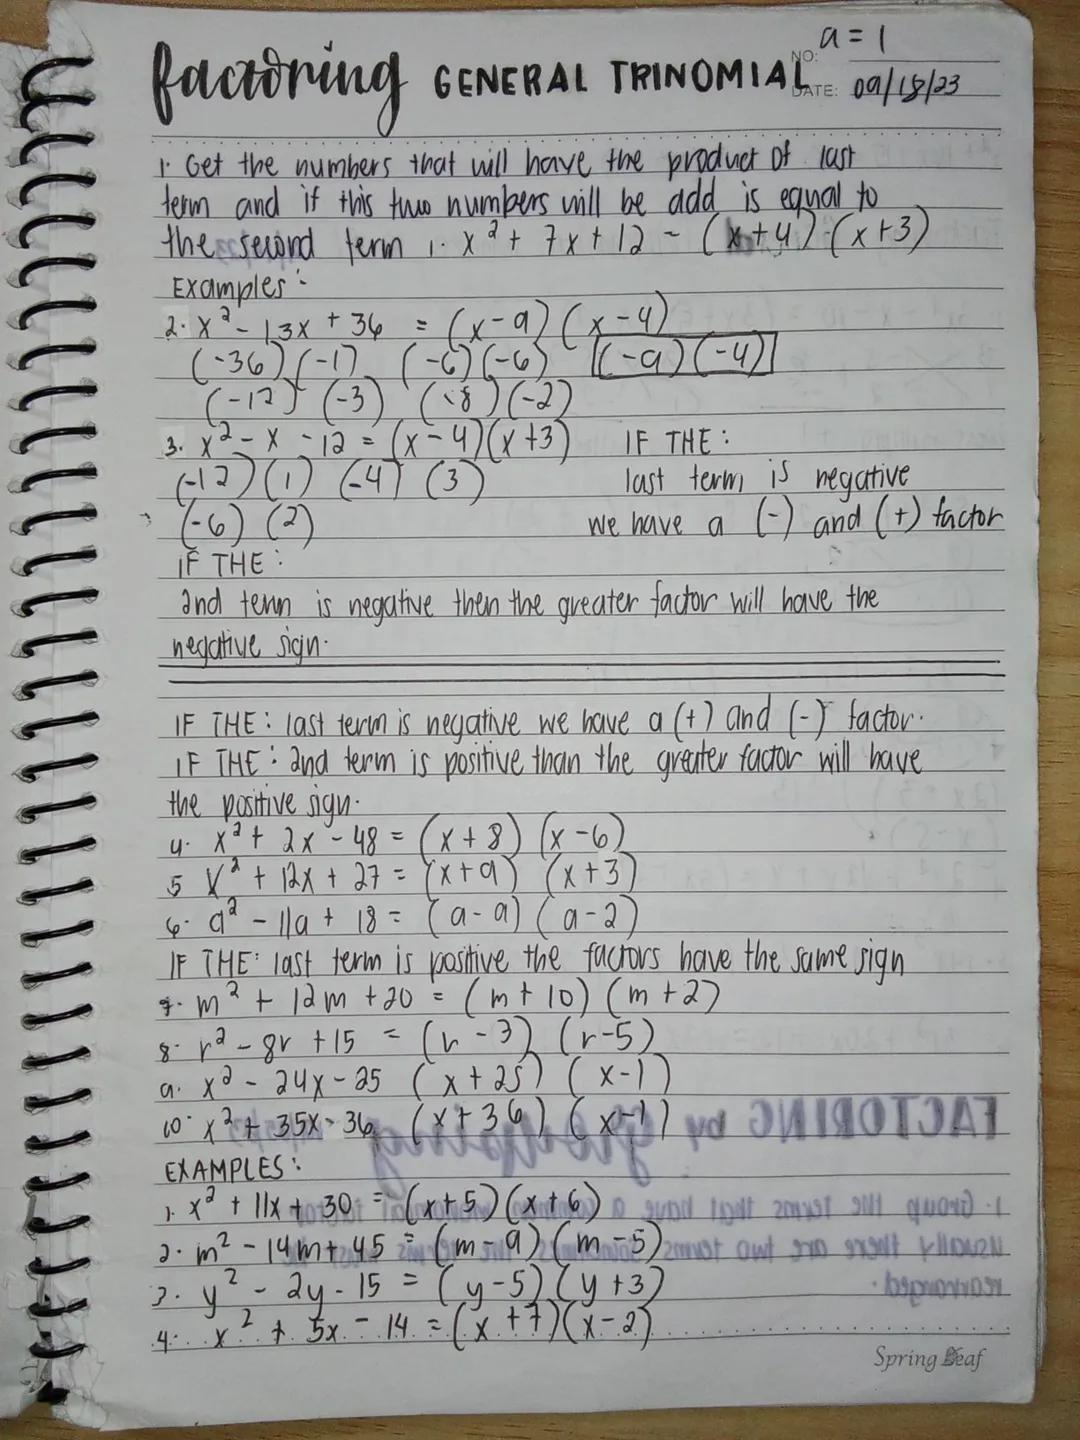 a = 1
factoring GENERAL TRINOMIAL
NO:
DATE: 09/18/23
1. Get the numbers that will have the product of last
term and if this two numbers will be add is equal to
the second term 1. x² + 7x + 12 - (x+4) (x+3)
Examples:
2. x² - 13x + 36 = (x-9) (x-4)
(-36) (-1) (-6) (-6) [(-9) (-4)]
(-12) (-3) (-8) (-2)
3. x² - x - 12 = (x-4)(x+3) IF THE:
(-12) (1) (-4) (3) last term is negative
(-6) (2) we have a (-) and (+) factor
IF THE:
2nd term is negative then the greater factor will have the
negative sign.
IF THE: last term is negative we have a (+) and (-) factor.
IF THE: 2nd term is positive than the greater factor will have
the positive sign.
4. x² + 2x - 48 = (x + 8) (x - 6)
5 x² + 12x + 27 = (x+9) (x+3)
6. a² - 11a + 18 = (a-9) (a-2)
IF THE: last term is positive the factors have the same sign
7. m² + 12m + 20 = (m + 10) (m + 2)
8. r² - 8r + 15 = (r - 3) (r-5)
9. x² - 24x - 25 (x + 25) (x-1)
10. x² + 35x - 36 (x + 36) (x-1)
EXAMPLES:
1. x² + 11x + 30 = (x+5)(x+6)
2. m² - 14m + 45 = (m-9)(m-5)
3. y² - 2y - 15 = (y-5)(y+3)
4. x² + 5x - 14 = (x+7)(x-2)
Spring Leaf